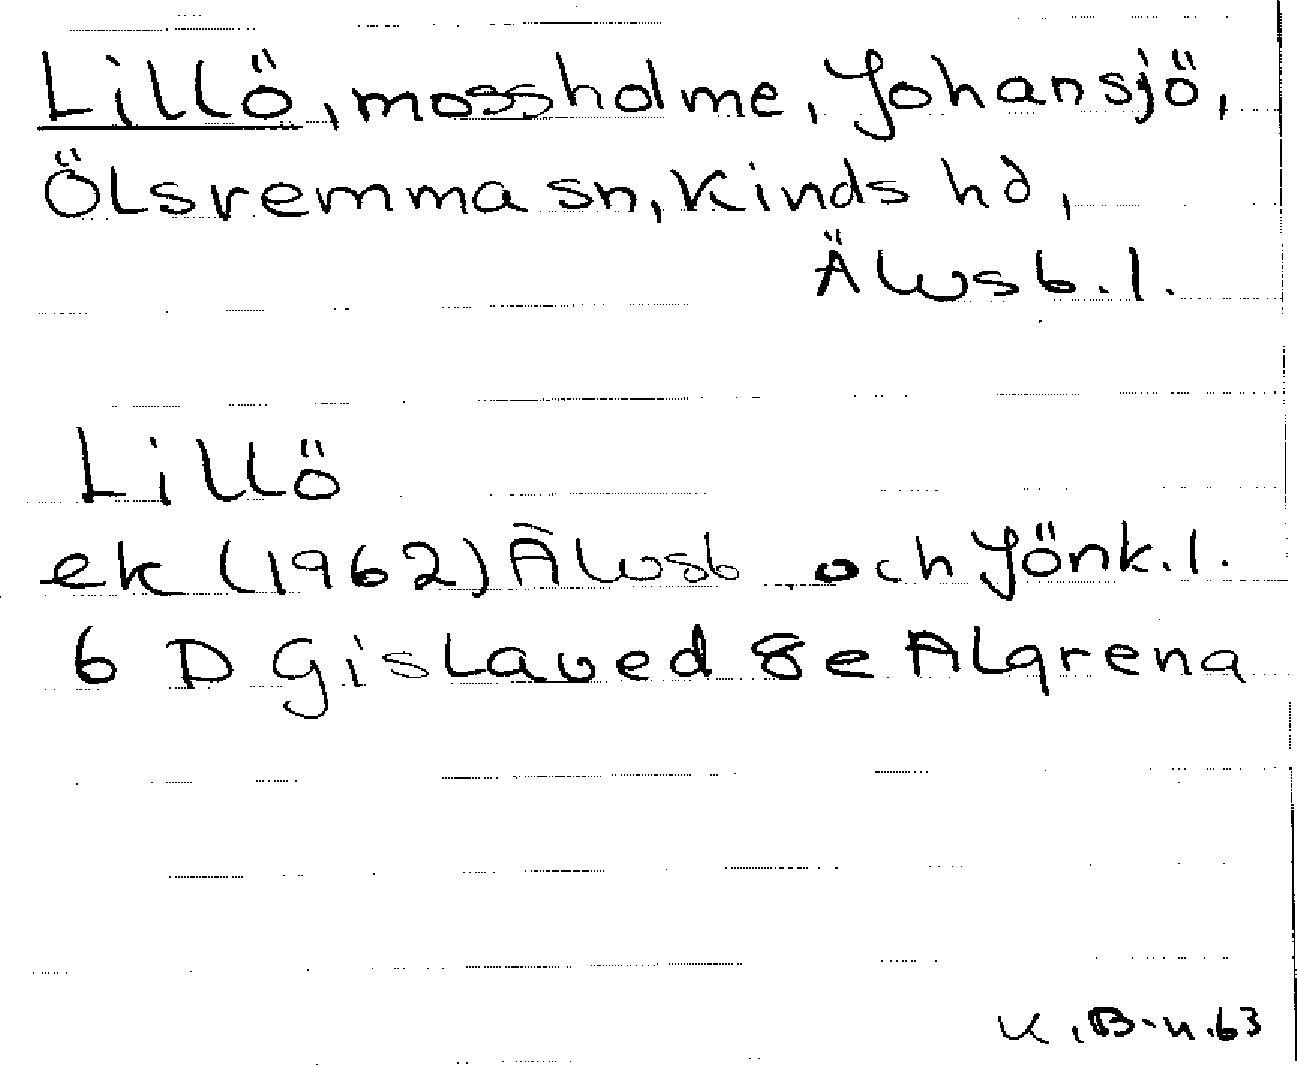 Lillö, mossholme, Johansjö,
Ölsremma sn, Kinds hd,
Älvsb. l.
Lillö
ek (1962) Älvsb och Jönk. l.
6 D Gislaved 8e Algrena
K. B-n. 63